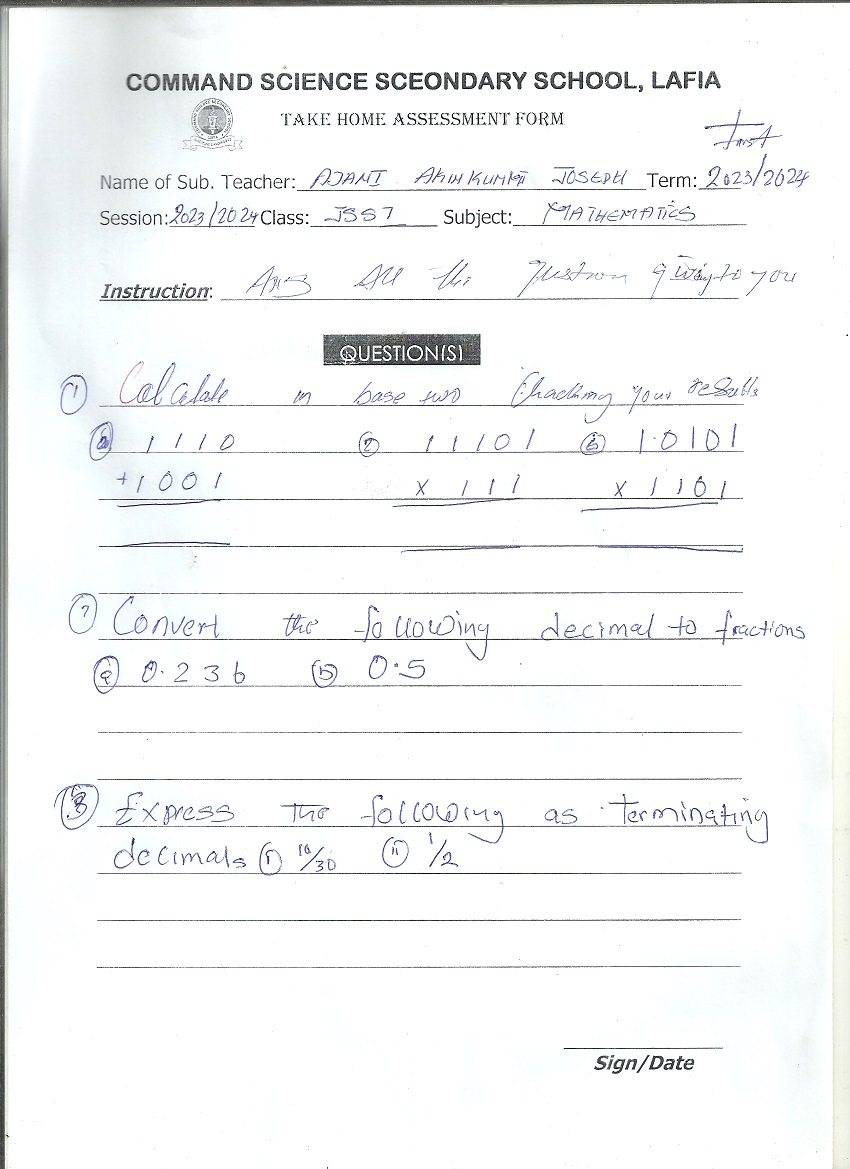 COMMAND SCIENCE SCEONDARY SCHOOL, LAFIA
TAKE HOME ASSESSMENT FORM
First
Name of Sub. Teacher: AJANI JOSEPH Term: 2023/2024
Session: 2023/2024 Class: JSS1 Subject: MATHEMATICS
Instruction: Ans All the Question given to you
QUESTION(S)
① Calculate in base two Checking your results
ⓐ 1110 ② 11101 ⓑ 10101
+1001 x 111 x 1101
② Convert the following decimal to fractions
ⓐ 0.236 ⓑ 0.5
③ Express the following as terminating
decimals ⓘ 10/30 ⓘⓘ 1/2
Sign/Date